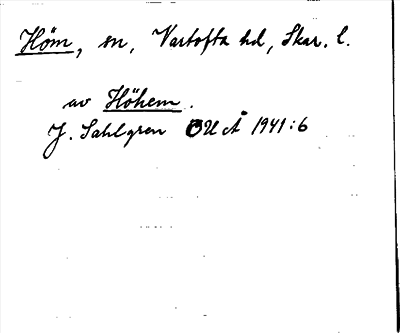 Höm, sn, Vartofta hd, Skar. l.
av Höhem.
J. Sahlgren OUÅ 1941:6